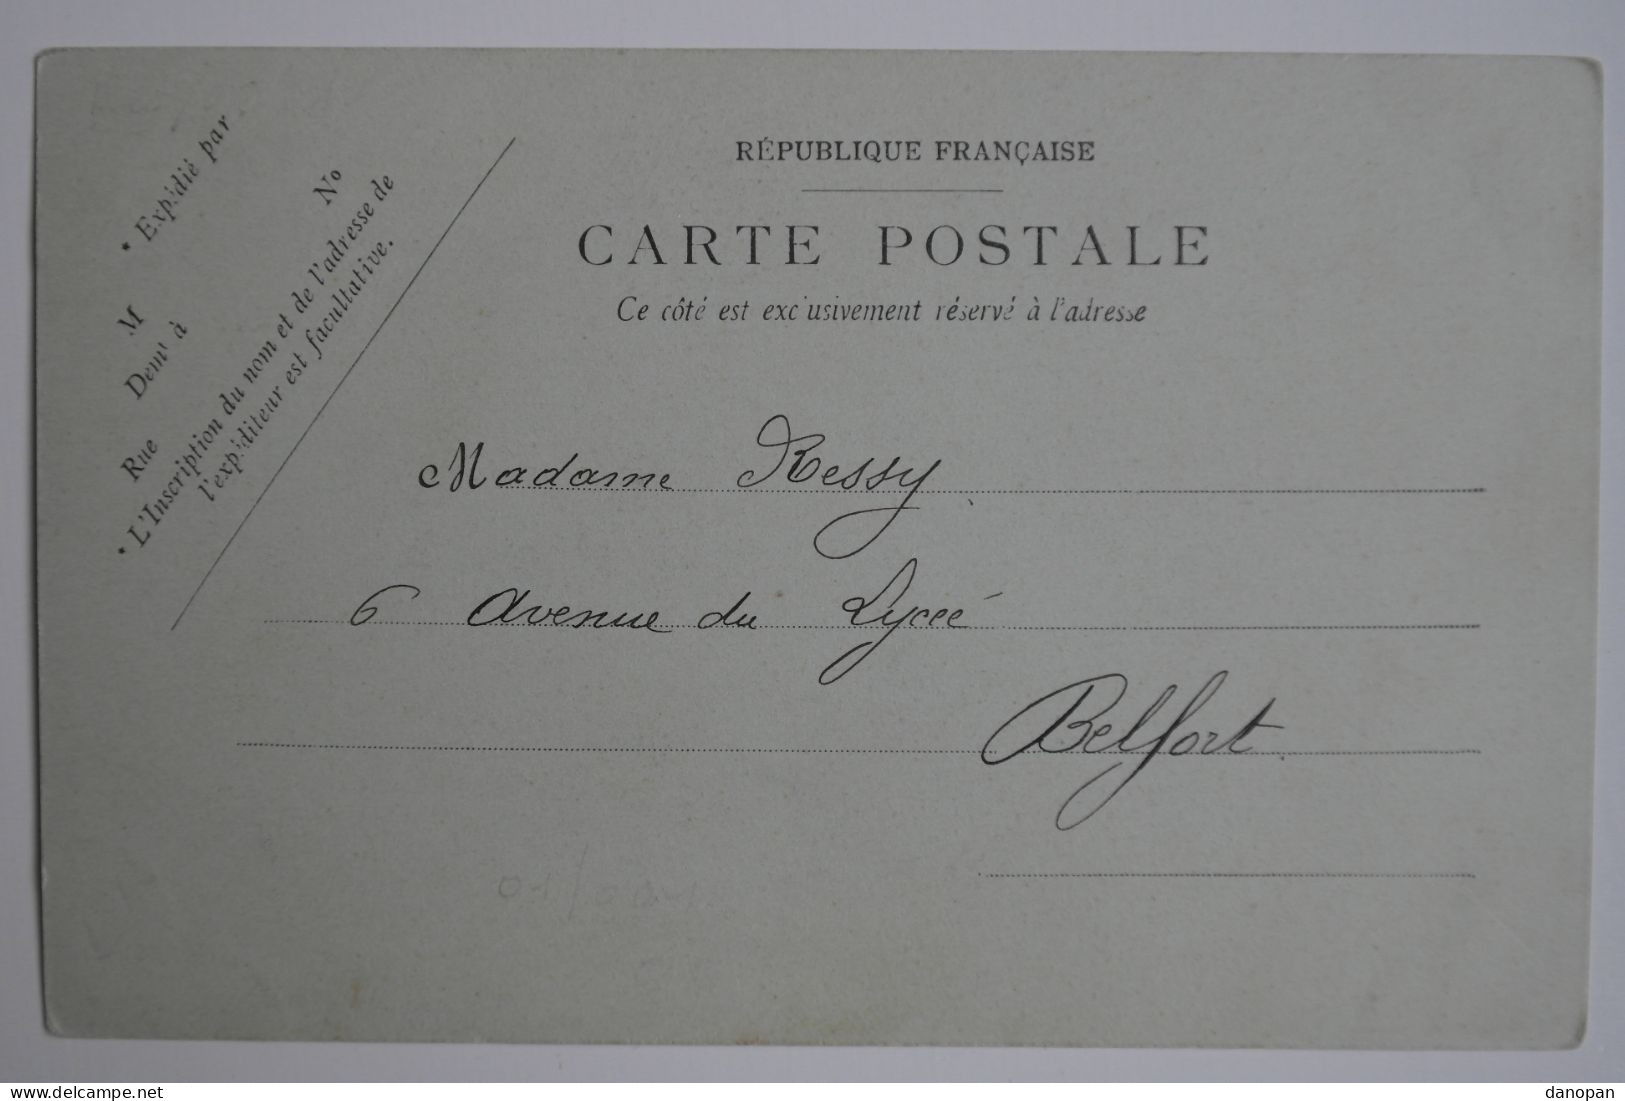 * Expédié par
M
Demt à
Rue No
* L'Inscription du nom et de l'adresse de
l'expéditeur est facultative.
RÉPUBLIQUE FRANÇAISE
CARTE POSTALE
Ce côté est exclusivement réservé à l'adresse
Madame Ressy
6 Avenue du Lyceé
Belfort
delcampe.net
danopan